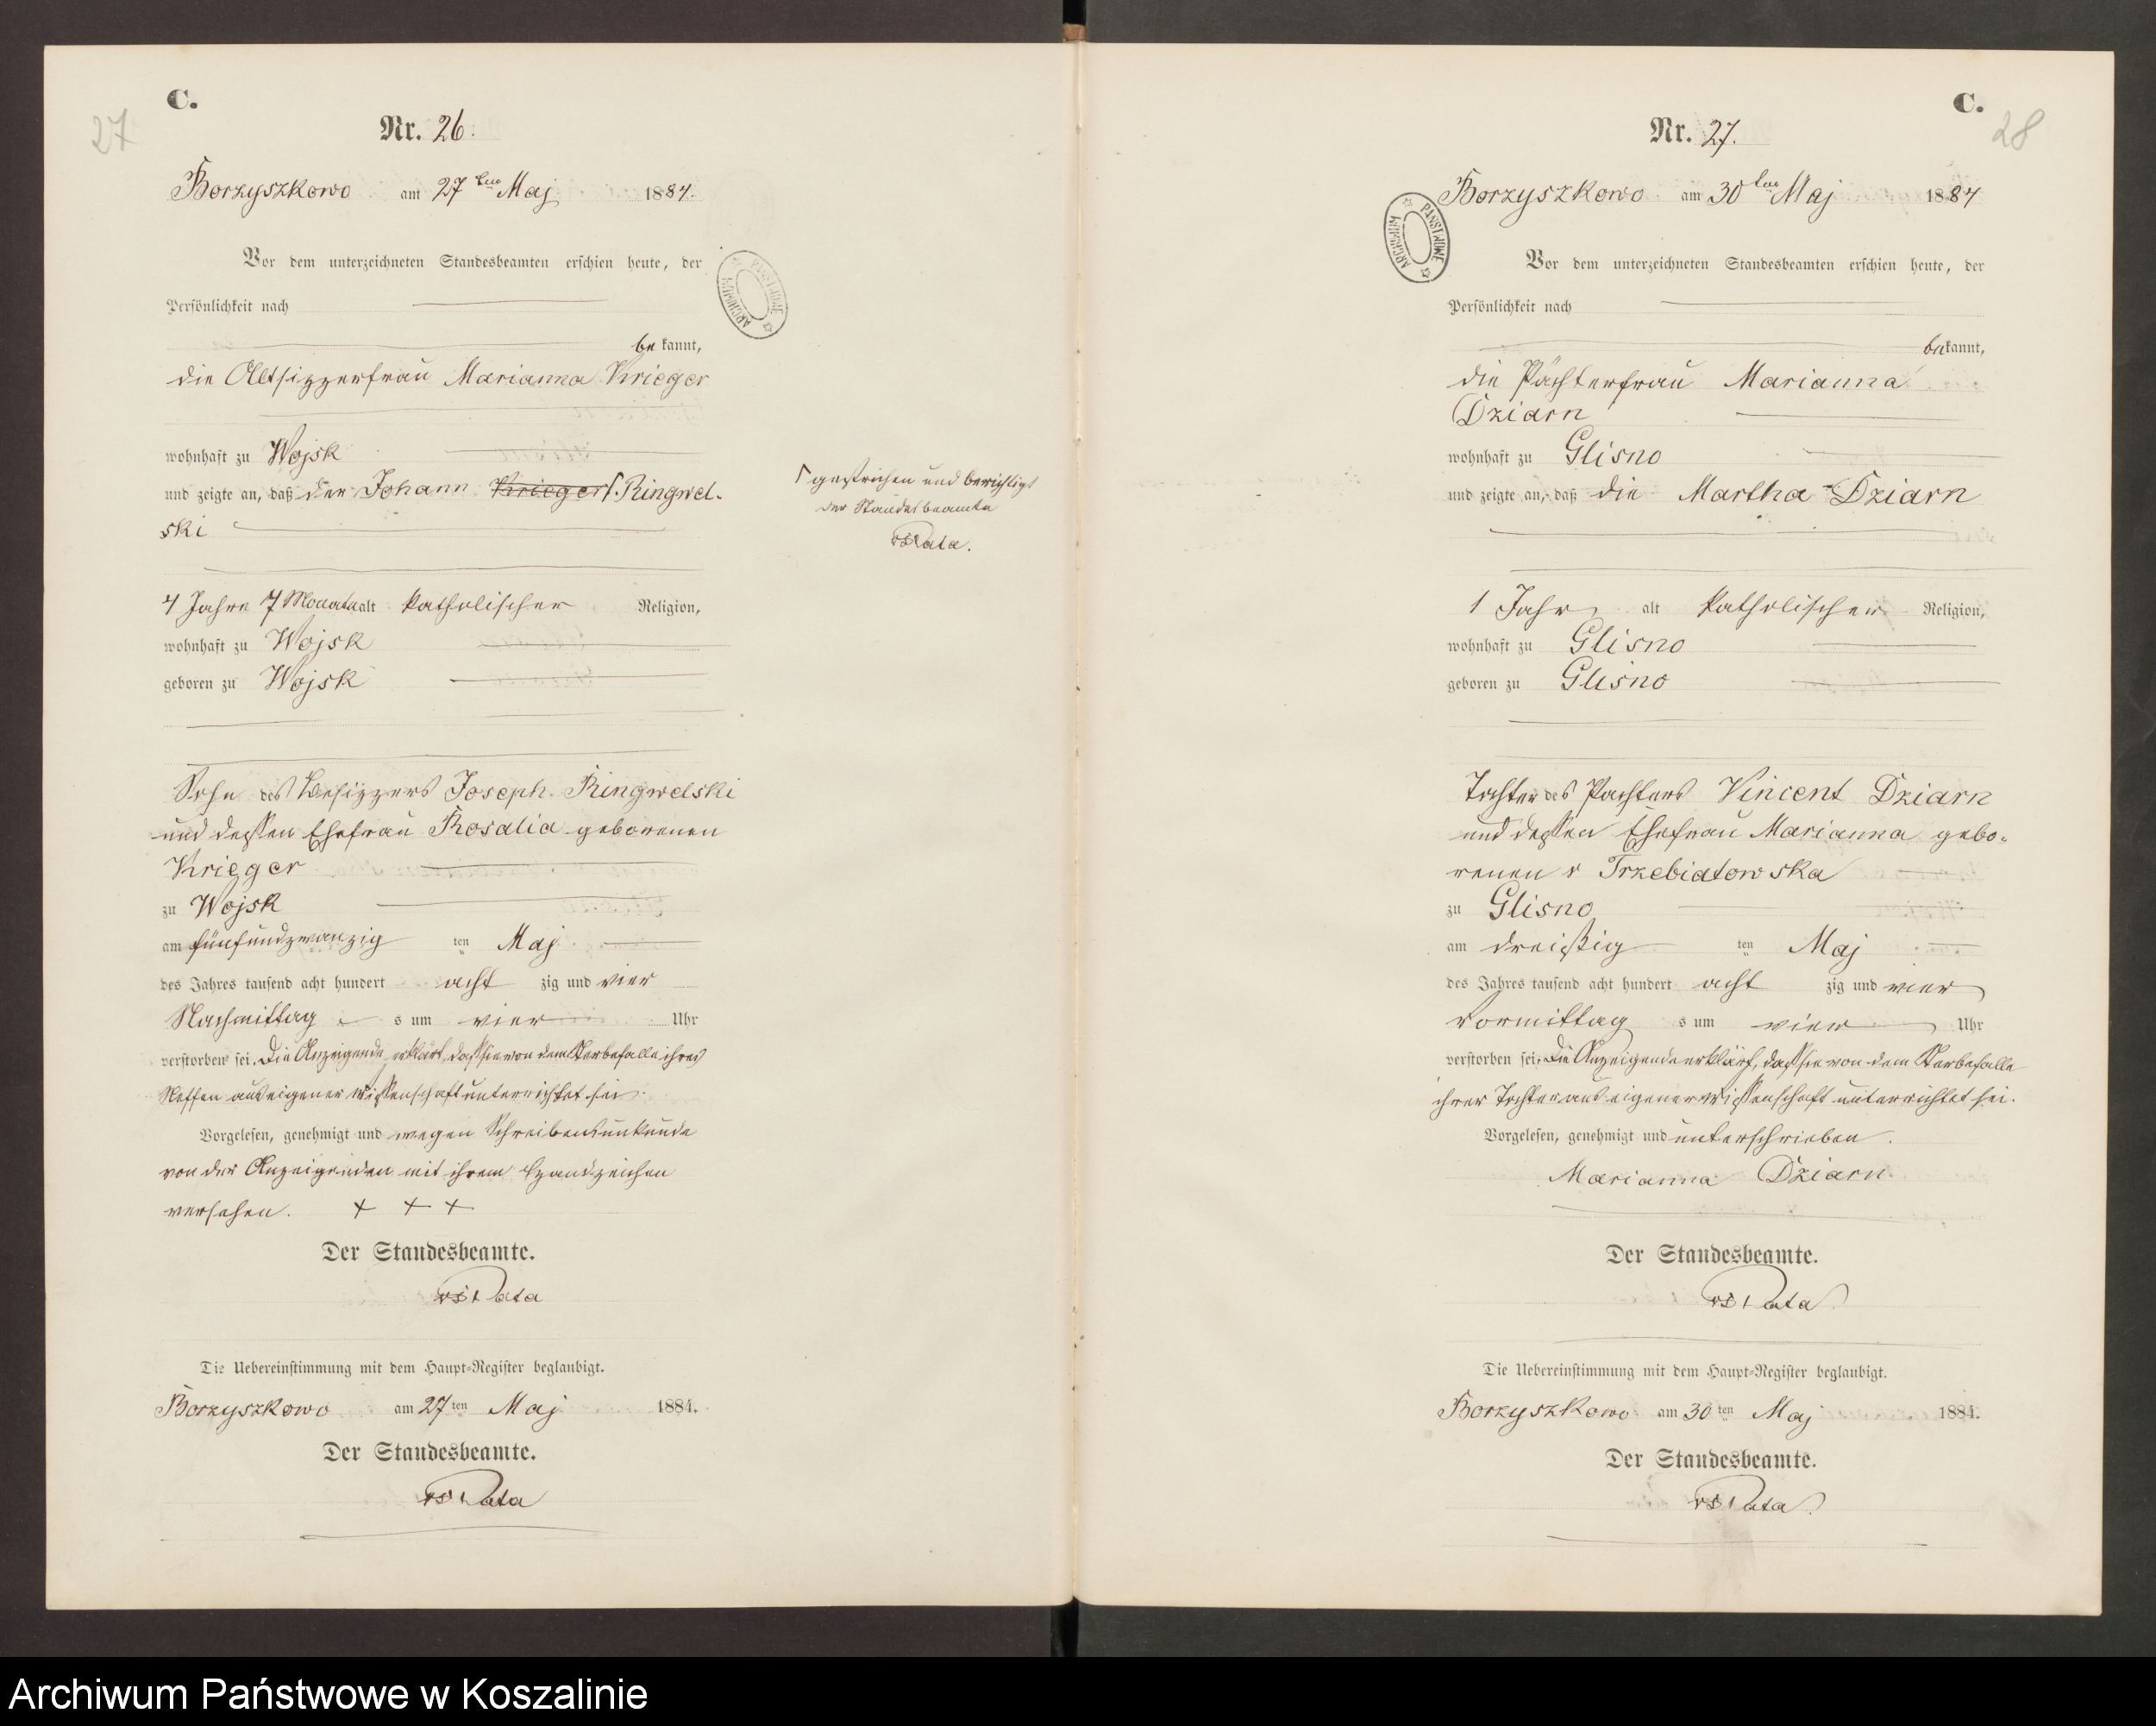 27
C.
Nr. 26.
Borzyszkowo am 27ten Maj 1884.
Vor dem unterzeichneten Standesbeamten erschien heute, der
Persönlichkeit nach
bekannt,
die Altsizzerfrau Marianna Krieger
wohnhaft zu Wojsk
und zeigte an, daß der Johann Krieger Ringwel-
ski
4 Jahre 7 Monate alt katholischer Religion,
wohnhaft zu Wojsk
geboren zu Wojsk
Sohn des Besizzers Joseph Ringwelski
und dessen Ehefrau Rosalia geborenen
Krieger
zu Wojsk
am fünfundzwanzig ten Maj
des Jahres tausend acht hundert acht zig und vier
Nachmittag s um vier Uhr
verstorben sei. Die Anzeigende erklärt, dass sie von dem Sterbefalle ihres
Neffen aus eigener Wissenschaft unterrichtet sei.
Vorgelesen, genehmigt und wegen Schreibensunkunde
von der Anzeigenden mit ihrem Handzeichen
versehen. + + +
Der Standesbeamte.
Pata
Die Uebereinstimmung mit dem Haupt-Register beglaubigt.
Borzyszkowo am 27ten Maj 1884.
Der Standesbeamte.
Pata
gestrichen und berichtigt
der Standesbeamte
Pata.
ARCHIWUM PAŃSTWOWE
C.
28
Nr. 27.
Borzyszkowo am 30ten Maj 1884
ARCHIWUM PAŃSTWOWE
Vor dem unterzeichneten Standesbeamten erschien heute, der
Persönlichkeit nach
bekannt,
die Pächterfrau Marianna
Dziarn
wohnhaft zu Glisno
und zeigte an, daß die Martha Dziarn
1 Jahr alt katholischer Religion,
wohnhaft zu Glisno
geboren zu Glisno
Tochter des Pachters Vincent Dziarn
und dessen Ehefrau Marianna gebo-
renen Trzebiatowska
zu Glisno
am dreißig ten Maj
des Jahres tausend acht hundert acht zig und vier
Vormittag s um vier Uhr
verstorben sei. Die Anzeigende erklärt, dass sie von dem Sterbefalle
ihrer Tochter aus eigener Wissenschaft unterrichtet sei.
Vorgelesen, genehmigt und unterschrieben.
Marianna Dziarn
Der Standesbeamte.
Pata
Die Uebereinstimmung mit dem Haupt-Register beglaubigt.
Borzyszkowo am 30ten Maj 1884.
Der Standesbeamte.
Pata
Archiwum Państwowe w Koszalinie